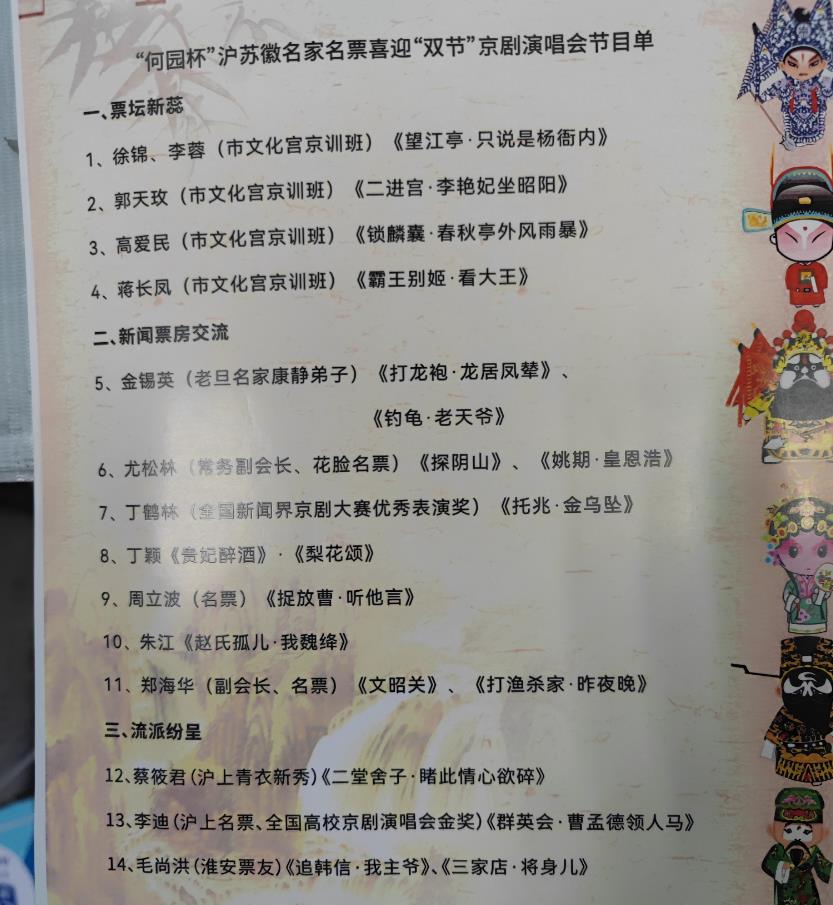 “何园杯”沪苏徽名家名票喜迎“双节”京剧演唱会节目单
一、票坛新蕊
1、徐锦、李蓉（市文化宫京训班）《望江亭·只说是杨衙内》
2、郭天玫（市文化宫京训班）《二进宫·李艳妃坐昭阳》
3、高爱民（市文化宫京训班）《锁麟囊·春秋亭外风雨暴》
4、蒋长凤（市文化宫京训班）《霸王别姬·看大王》
二、新闻票房交流
5、金锡英（老旦名家康静弟子）《打龙袍·龙居凤辇》、
《钓龟·老天爷》
6、尤松林（常务副会长、花脸名票）《探阴山》、《姚期·皇恩浩》
7、丁鹤林（全国新闻界京剧大赛优秀表演奖）《托兆·金乌坠》
8、丁颖《贵妃醉酒》·《梨花颂》
9、周立波（名票）《捉放曹·听他言》
10、朱江《赵氏孤儿·我魏绛》
11、郑海华（副会长、名票）《文昭关》、《打渔杀家·昨夜晚》
三、流派纷呈
12、蔡筱君（沪上青衣新秀）《二堂舍子·睹此情心欲碎》
13、李迪（沪上名票、全国高校京剧演唱会金奖）《群英会·曹孟德领人马》
14、毛尚洪（淮安票友）《追韩信·我主爷》、《三家店·将身儿》